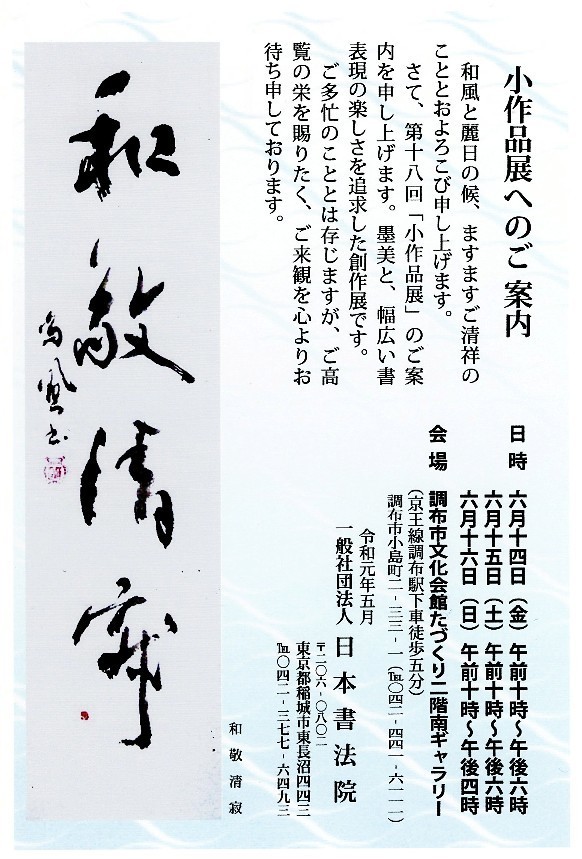 小作品展へのご案内
和風と麗日の候、ますますご清祥の
こととおよろこび申し上げます。
さて、第十八回「小作品展」のご案
内を申し上げます。墨美と、幅広い書
表現の楽しさを追求した創作展です。
ご多忙のこととは存じますが、ご高
覧の栄を賜りたく、ご来観を心よりお
待ち申しております。
日時 六月十四日（金）午前十時〜午後六時
六月十五日（土）午前十時〜午後六時
六月十六日（日）午前十時〜午後四時
会場 調布市文化会館たづくり二階南ギャラリー
（京王線調布駅下車徒歩五分）
調布市小島町二-三三-一（℡〇四二-四四一-六一一一）
令和元年五月
一般社団法人 日本書法院
〒二〇六-〇八〇二
東京都稲城市東長沼四四三
℡〇四二-三七七-六四九三
和敬清寂
和敬清寂